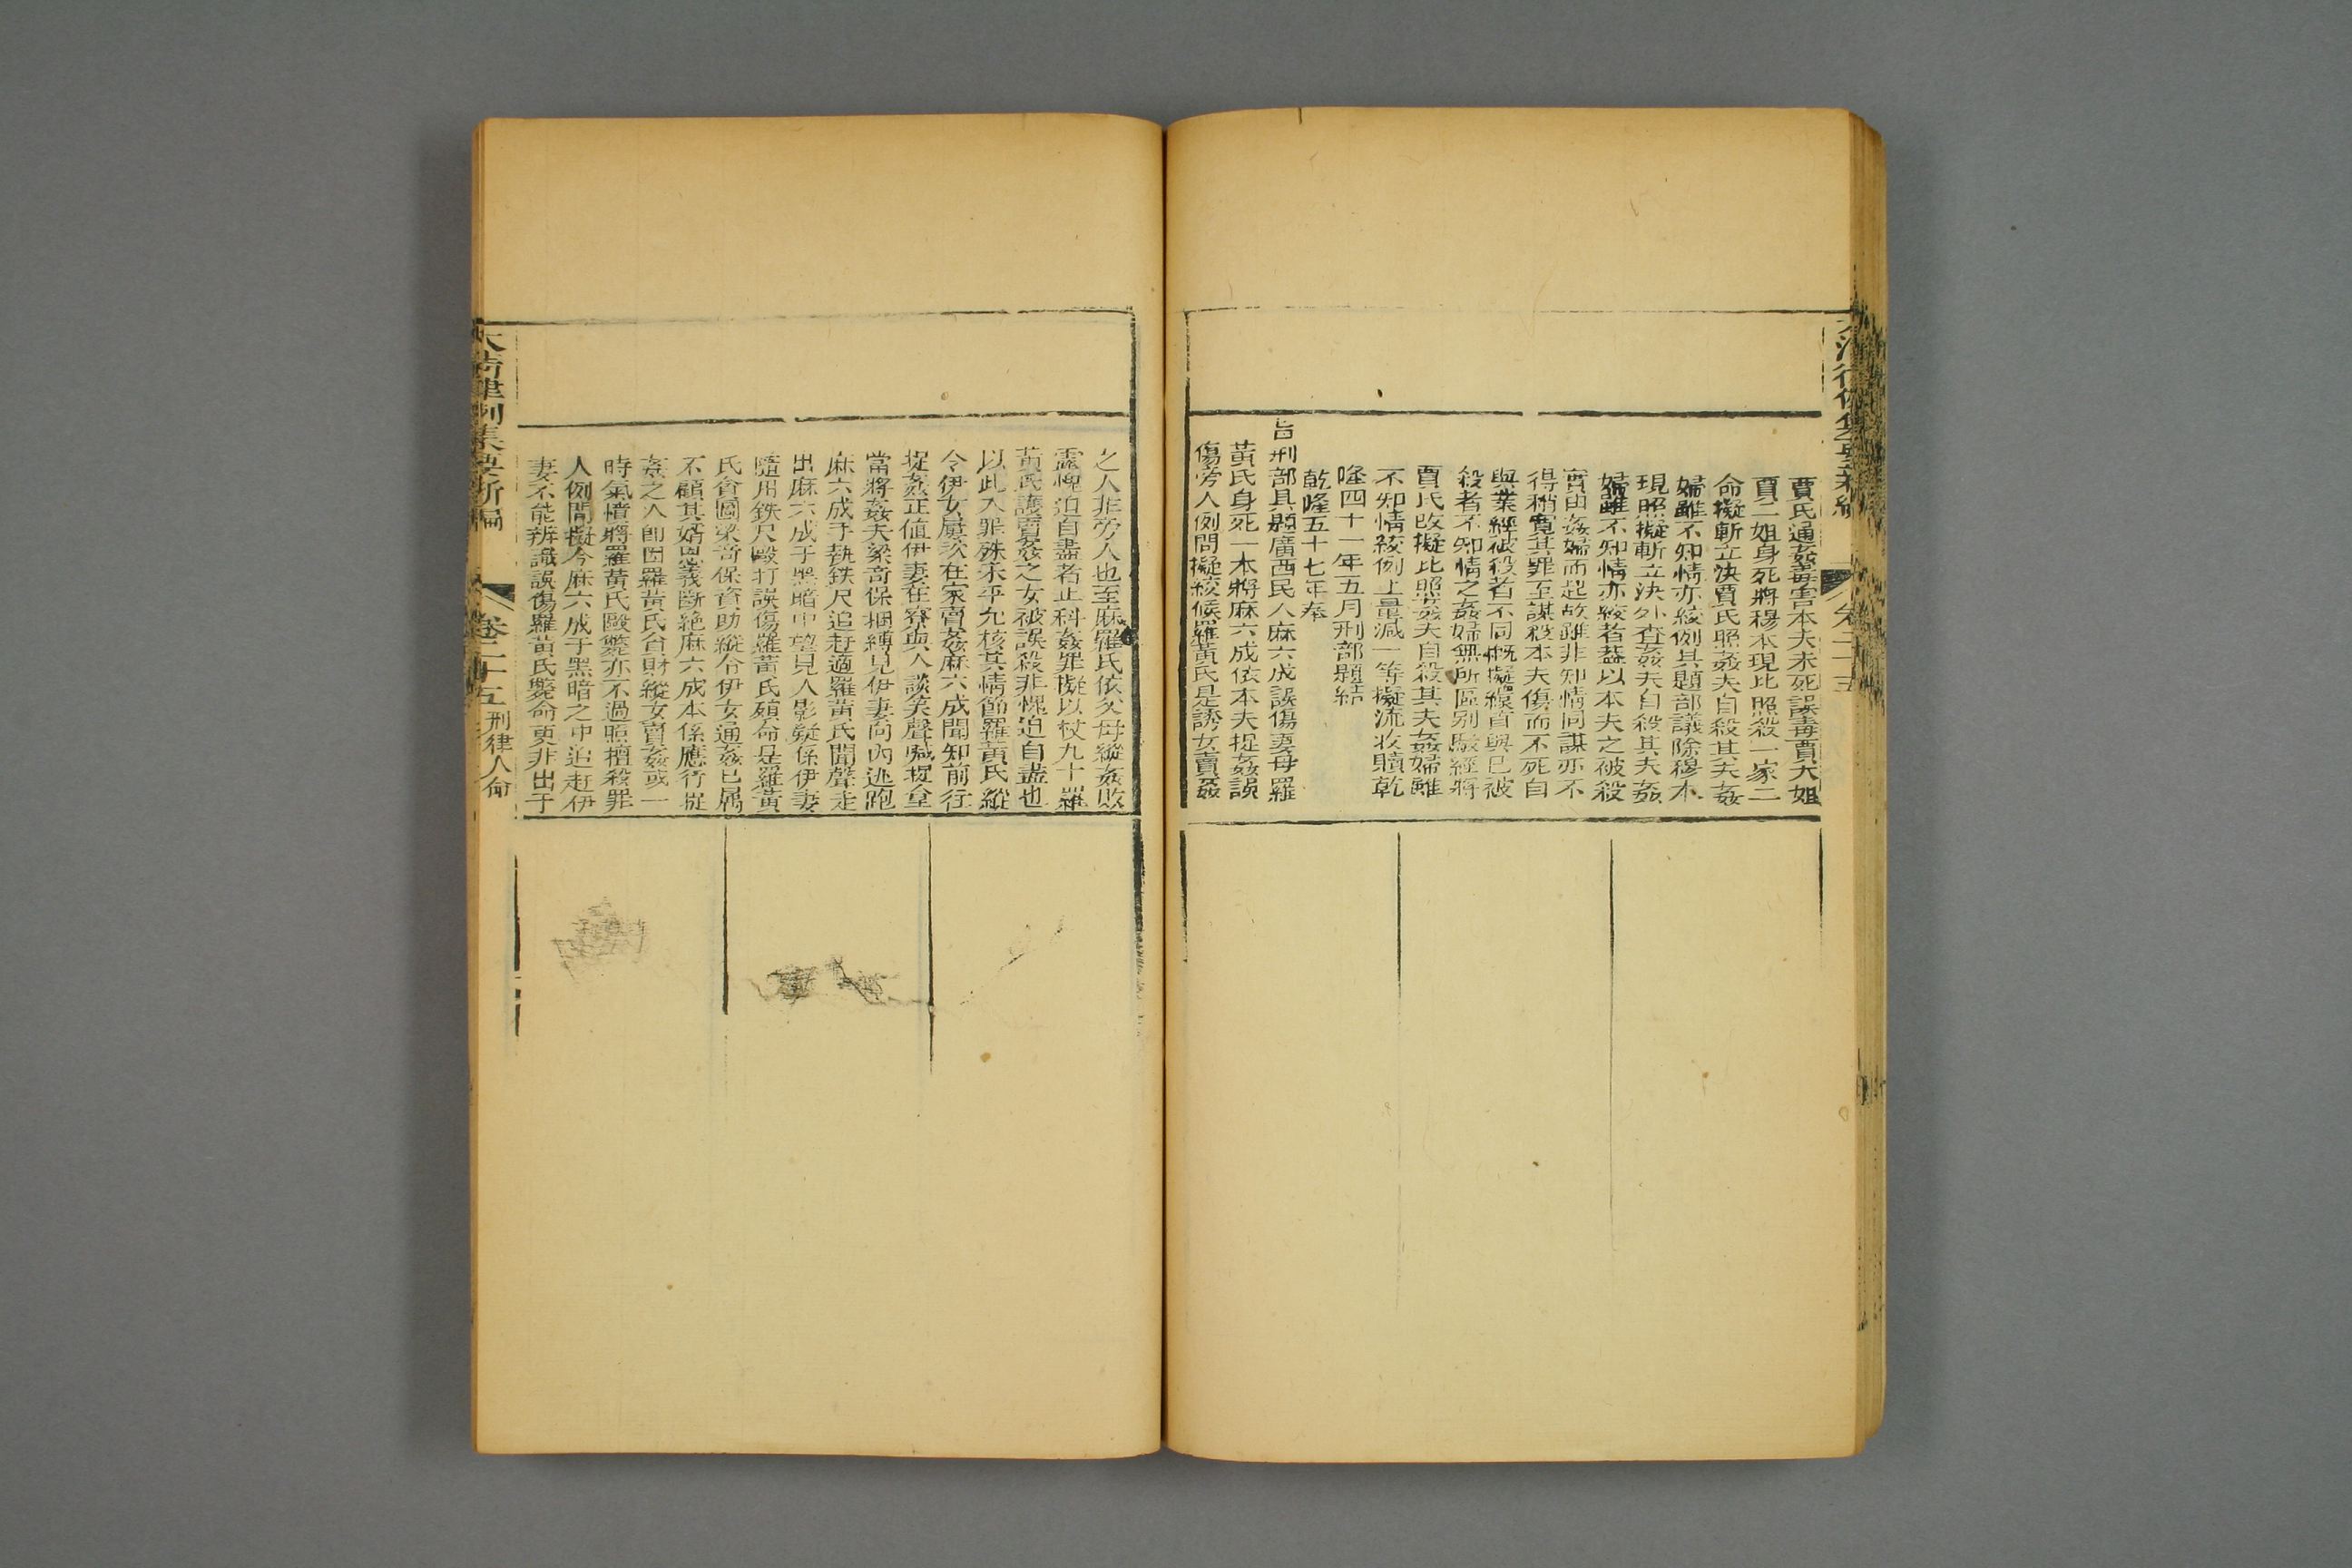 賈氏通姦毒害本夫未死誤毒賈大姐
賈二姐身死將穆本現比照殺一家二
命擬斬立決賈氏照姦夫自殺其夫姦
婦雖不知情亦絞例具題部議除穆本
現照擬斬立決外查姦夫自殺其夫姦
婦雖不知情亦絞者蓋以本夫之被殺
實由姦婦而起故雖非知情同謀亦不
得稍寬其罪至謀殺本夫傷而不死自
與業經被殺者不同槪擬繯首與已被
殺者不知情之姦婦無所區別駁經將
賈氏改擬比照姦夫自殺其夫姦婦雖
不知情絞例上量減一等擬流收贖乾
隆四十一年五月刑部題結
乾隆五十七年奉
旨刑部具題廣西民人麻六成誤傷妻母羅
黃氏身死一本將麻六成依本夫捉姦誤
傷旁人例問擬絞候羅黃氏是誘女賣姦
之人非旁人也至麻羅氏依父母縱姦敗
露愧迫自盡者止科姦罪擬以杖九十羅
黃氏護賣姦之女被誤殺非愧迫自盡也
以此入罪殊未平允核其情節羅黃氏縱
令伊女屢次在家賣姦麻六成聞知前行
捉姦正值伊妻在寮與人談笑聲喊捉拿
當將姦夫梁奇保捆縛見伊妻向內逃跑
麻六成手執鉄尺追赶適羅黃氏聞聲走
出麻六成于黑暗中望見人影疑係伊妻
隨用鉄尺毆打誤傷羅黃氏殞命是羅黃
氏貪圖梁奇保資助縱令伊女通姦已屬
不顧其婿恩義斷絶麻六成本係應行捉
姦之人卽因羅黃氏貪財縱女賣姦或一
時氣憤將羅黃氏毆斃亦不過照擅殺罪
人例問擬今麻六成于黑暗之中追赶伊
妻不能辨識誤傷羅黃氏斃命更非出于
大淸律例集要新編
卷二十五
刑律人命